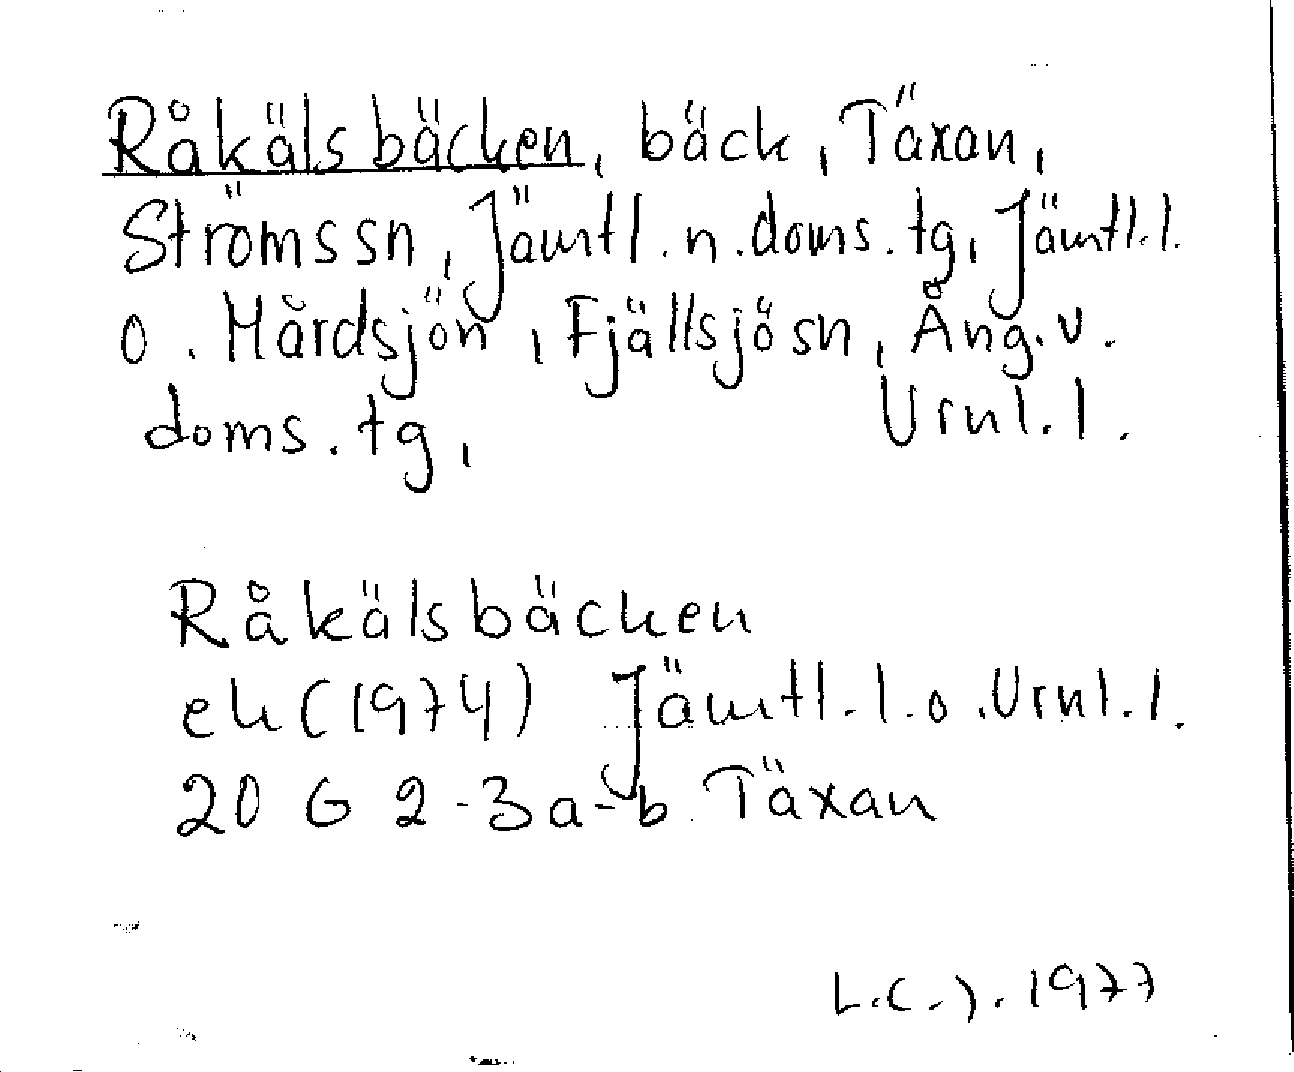 Råkälsbäcken, bäck, Täxan,
Ströms sn, Jämtl. n. doms. tg, Jämtl. l.
o. Mårdsjön, Fjällsjö sn, Ång. v.
doms. tg, Vrnl. l.
Råkälsbäcken
ek (1974) Jämtl. l. o. Vrnl. l.
20 G 2-3a-b Täxan
L.C.J. 1977